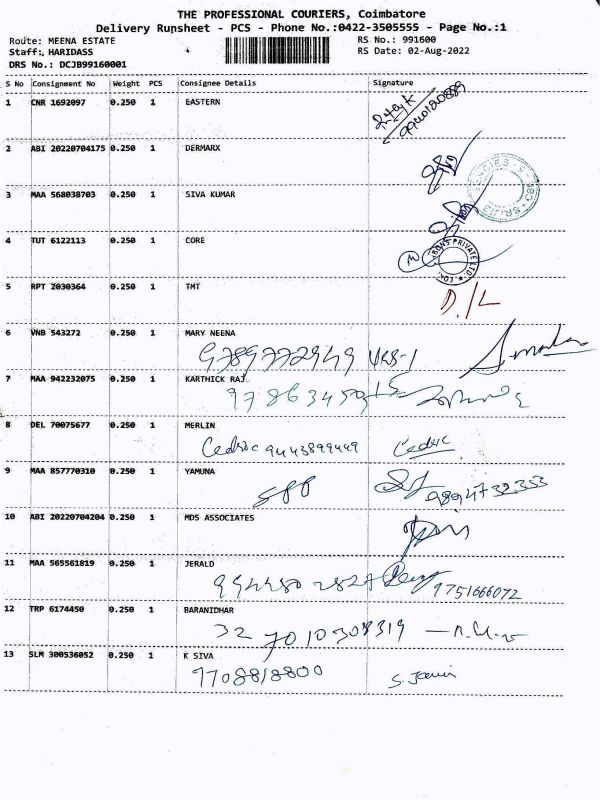 THE PROFESSIONAL COURIERS, Coimbatore
Delivery Runsheet - PCS - Phone No.:0422-3505555 - Page No.:1
Route: MEENA ESTATE RS No.: 991600
Staff: HARIDASS RS Date: 02-Aug-2022
DRS No.: DCJB99160001
S No Consignment No Weight PCS Consignee Details Signature
1 CNR 1692097 0.250 1 EASTERN
2 ABI 20220704175 0.250 1 DERMARX
3 MAA 568038703 0.250 1 SIVA KUMAR
4 TUT 6122113 0.250 1 CORE
5 RPT 2030364 0.250 1 TMT
D./L
6 VNB 543272 0.250 1 MARY NEENA
9789772949
7 MAA 942232075 0.250 1 KARTHICK RAJ
8 DEL 70075677 0.250 1 MERLIN
Cedric 9443899449 Cedric
9 YAMUNA MAA 857770310 0.250 1
9894732353
10 ABI 20220704204 0.250 1 MDS ASSOCIATES
11 MAA 565561819 0.250 1 JERALD
9751666072
12 TRP 6174450 0.250 1 BARANIDHAR
32 7010308319
13 SLM 300536052 0.250 1 K SIVA
7708818800